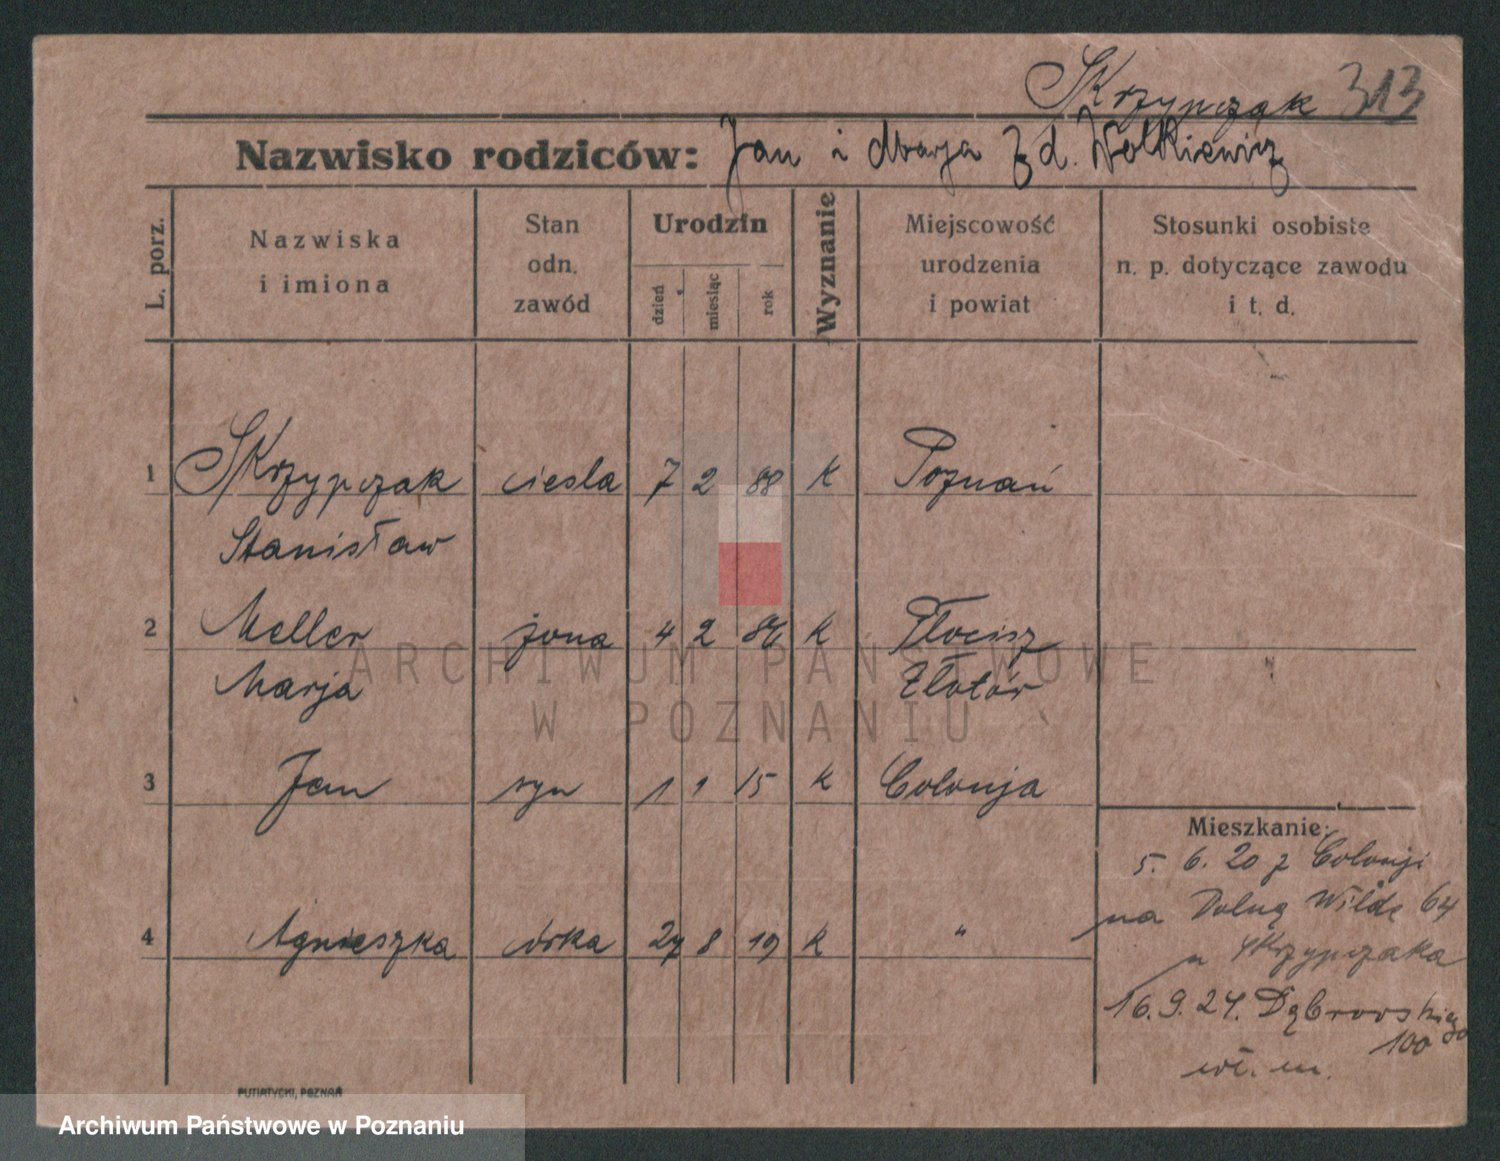 Skrzypczak 313
Nazwisko rodziców: Jan i Marja z d. Wolkiewicz
L. porz.
Nazwiska
i imiona
Stan
odn.
zawód
Urodzin
dzień
miesiąc
rok
Wyznanie
Miejscowość
urodzenia
i powiat
Stosunki osobiste
n. p. dotyczące zawodu
i t. d.
1 Skrzypczak ciesla 7 2 88 K Poznań
Stanisław
2 Meller żona 4 2 K
Marja Złotów
3 Jan syn 1 1 15 K Colonja
4 Agnieszka córka 27 8 19 K "
Mieszkanie:
5. 6. 20 z Colonji
na Dolną Wilde 64
u Skrzypczaka
16. 9. 24. Dąbrowskiego
100
wł. m.
PUTIATYCKI, POZNAŃ
ARCHIWUM PAŃSTWOWE
W POZNANIU
Archiwum Państwowe w Poznaniu